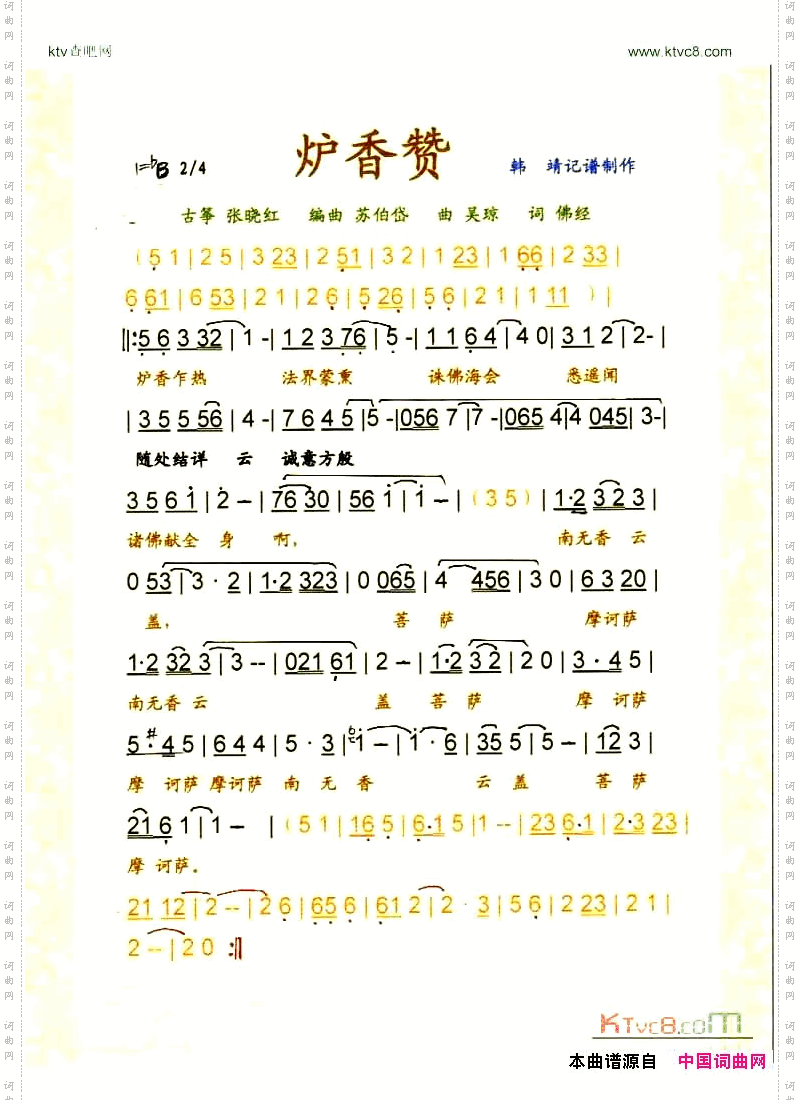 ktv查吧网 www.ktvc8.com
炉香赞
1=♭B 2/4 韩 靖记谱制作
古筝 张晓红 编曲 苏伯岱 曲 吴琼 词 佛经
（5 1 | 2 5 | 3 23 | 2 51 | 3 2 | 1 23 | 1 66 | 2 33 |
6 61 | 6 53 | 2 1 | 2 6 | 5 26 | 5 6 | 2 1 | 1 11 ）|
‖:5 6 3 32 | 1 -| 1 2 3 76 | 5 -| 1 1 6 4 | 4 0| 3 1 2 | 2- |
炉香乍热 法界蒙熏 诛佛海会 悉遥闻
| 3 5 5 56 | 4 -| 7 6 4 5 |5 -|056 7 |7 -|065 4|4 045| 3-|
随处结详 云 诚意方殷
3 5 6 i | 2 – | 7630 | 56 i | i – |（3 5）| 1·2 3 2 3 |
诸佛献全 身 啊， 南无香 云
0 53 | 3 · 2 | 1·2 323 | 0 065 | 4 456 | 3 0 | 6 3 20 |
盖， 菩 萨 摩诃萨
1·2 32 3 | 3 -- | 021 61 | 2 – | 1·2 3 2 | 2 0 | 3 · 4 5 |
南无香 云 盖 菩 萨 摩 诃萨
5 · #4 5 | 6 4 4 | 5 · 3 | ♭i – | i · 6 | 35 5 | 5 – | 12 3 |
摩 诃萨 摩诃萨 南 无 香 云 盖 菩 萨
21 6 1 | 1 – |（5 1 | 16 5 | 6·1 5 |1 -- | 23 6·1 | 2·3 23 |
摩 诃萨。
21 12 | 2 -- | 2 6 | 65 6 | 61 2 | 2 · 3 | 5 6 | 2 23 | 2 1 |
2 -- | 2 0 :‖
KTvc8.com
本曲谱源自 中国词曲网
词曲网